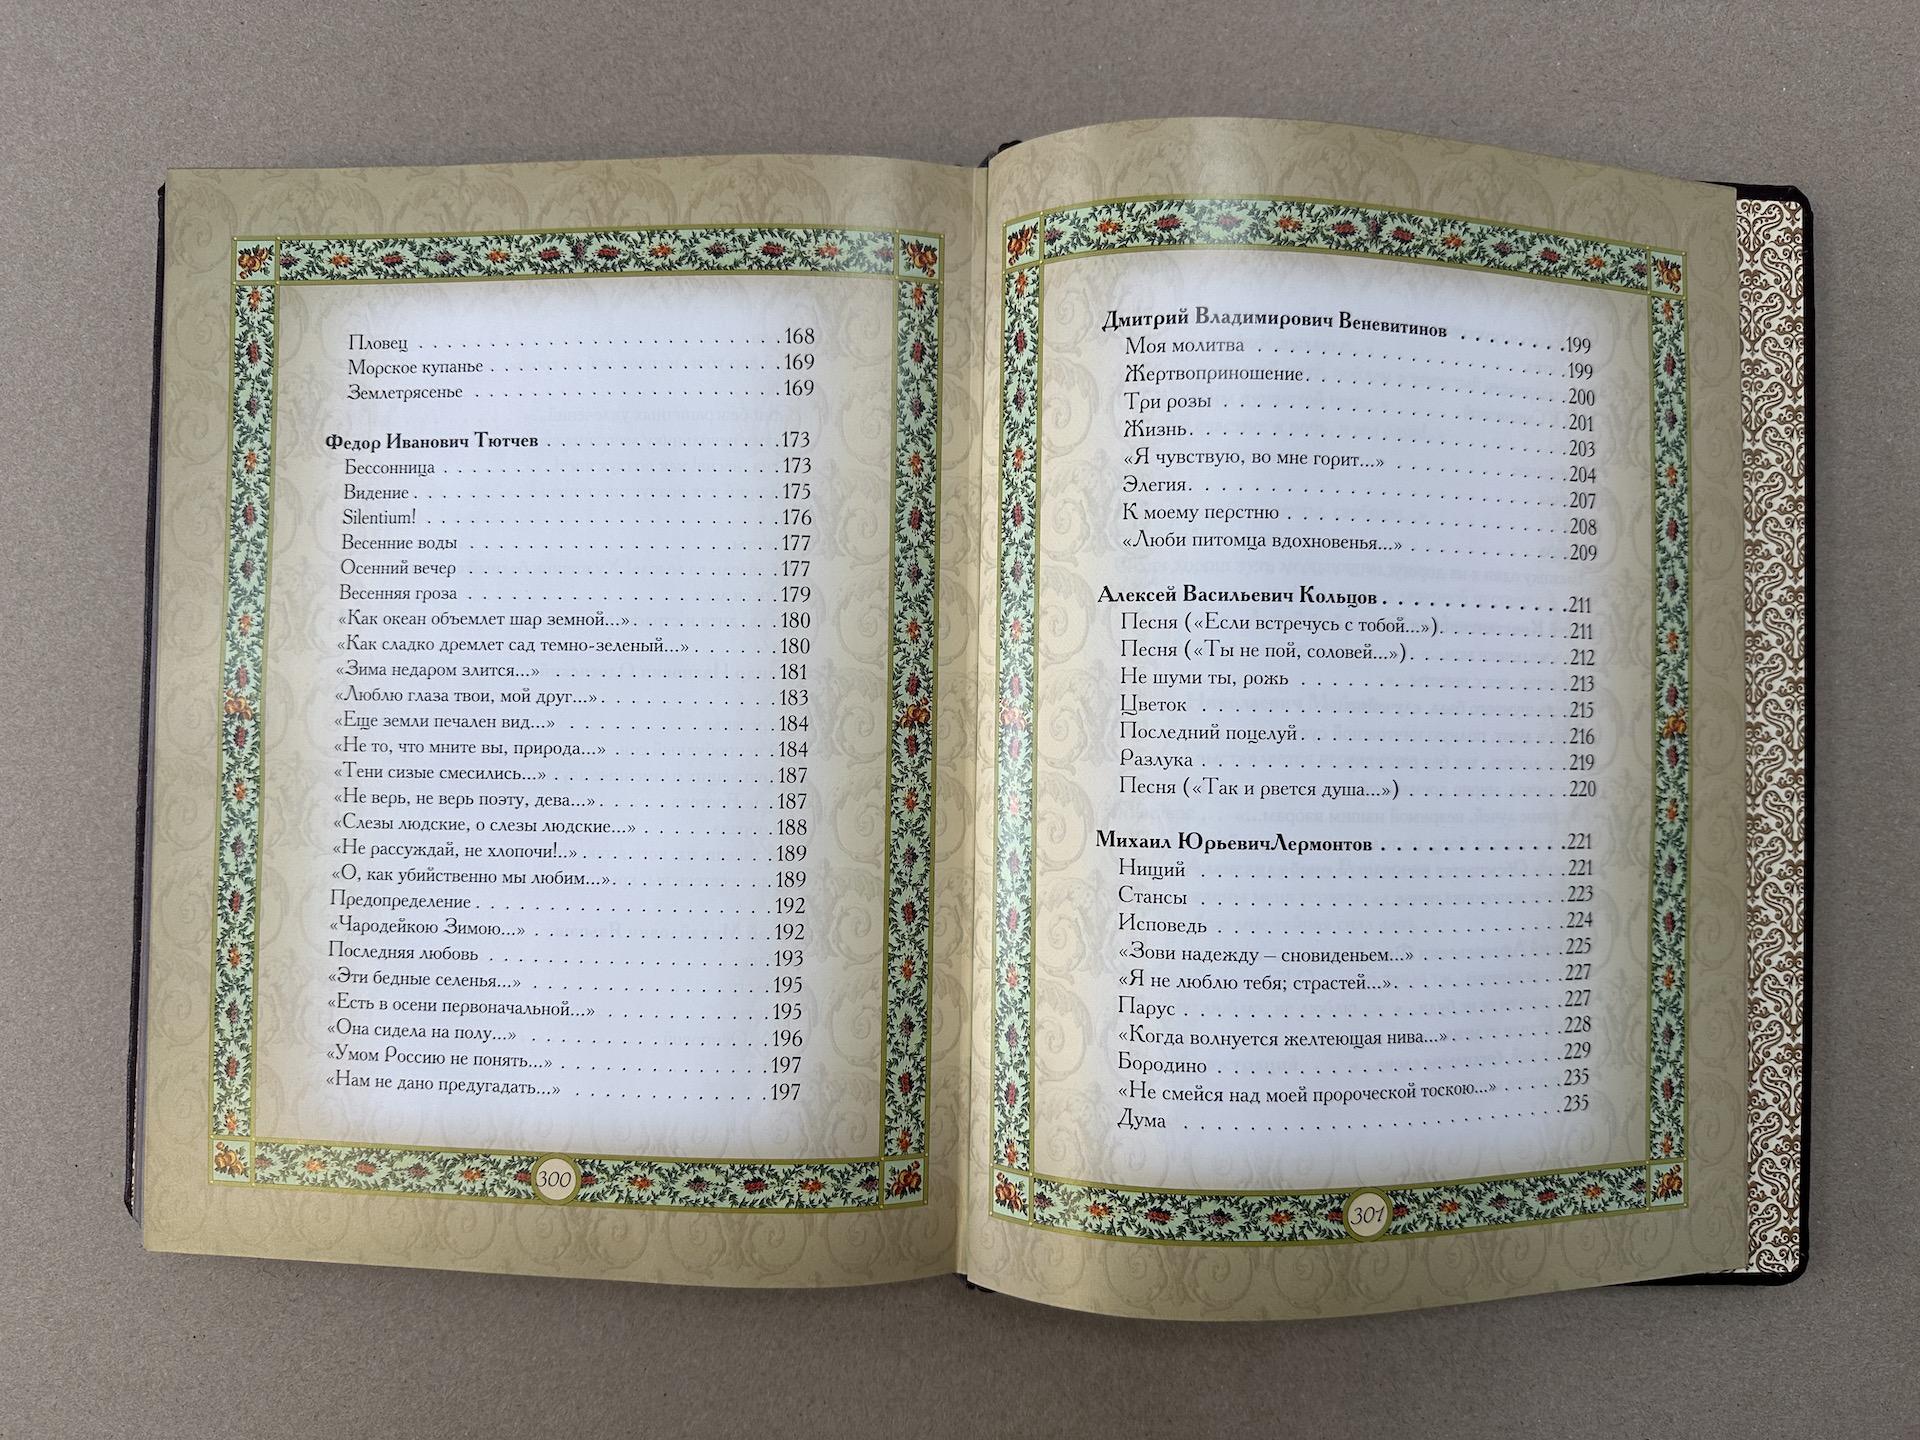 Пловец . . . . . . . . . . . . . . . . . . . . . . . . . 168
Морское купанье . . . . . . . . . . . . . . . . . . . . 169
Землетрясенье . . . . . . . . . . . . . . . . . . . . . 169
Федор Иванович Тютчев . . . . . . . . . . . . . . . . . 173
Бессонница . . . . . . . . . . . . . . . . . . . . . . . 173
Видение . . . . . . . . . . . . . . . . . . . . . . . . 175
Silentium! . . . . . . . . . . . . . . . . . . . . . . . 176
Весенние воды . . . . . . . . . . . . . . . . . . . . . 177
Осенний вечер . . . . . . . . . . . . . . . . . . . . . 177
Весенняя гроза . . . . . . . . . . . . . . . . . . . . . 179
«Как океан объемлет шар земной...» . . . . . . . . . . . 180
«Как сладко дремлет сад темно-зеленый...» . . . . . . 180
«Зима недаром злится...» . . . . . . . . . . . . . . . . 181
«Люблю глаза твои, мой друг...» . . . . . . . . . . . . 183
«Еще земли печален вид...» . . . . . . . . . . . . . . . 184
«Не то, что мните вы, природа...» . . . . . . . . . . . 184
«Тени сизые смесились...» . . . . . . . . . . . . . . . 187
«Не верь, не верь поэту, дева...» . . . . . . . . . . . 187
«Слезы людские, о слезы людские...» . . . . . . . . . . 188
«Не рассуждай, не хлопочи!..» . . . . . . . . . . . . . 189
«О, как убийственно мы любим...» . . . . . . . . . . . . 189
Предопределение . . . . . . . . . . . . . . . . . . . . 192
«Чародейкою Зимою...» . . . . . . . . . . . . . . . . . 192
Последняя любовь . . . . . . . . . . . . . . . . . . . . 193
«Эти бедные селенья...» . . . . . . . . . . . . . . . . 195
«Есть в осени первоначальной...» . . . . . . . . . . . . 195
«Она сидела на полу...» . . . . . . . . . . . . . . . . 196
«Умом Россию не понять...» . . . . . . . . . . . . . . . 197
«Нам не дано предугадать...» . . . . . . . . . . . . . . 197
300
Дмитрий Владимирович Веневитинов . . . . . . . . 199
Моя молитва . . . . . . . . . . . . . . . . . . . . . . 199
Жертвоприношение . . . . . . . . . . . . . . . . . . . . 200
Три розы . . . . . . . . . . . . . . . . . . . . . . . . 201
Жизнь . . . . . . . . . . . . . . . . . . . . . . . . . 203
«Я чувствую, во мне горит...» . . . . . . . . . . . . . 204
Элегия . . . . . . . . . . . . . . . . . . . . . . . . . 207
К моему перстню . . . . . . . . . . . . . . . . . . . . 208
«Люби питомца вдохновенья...» . . . . . . . . . . . . . 209
Алексей Васильевич Кольцов . . . . . . . . . . . . . 211
Песня («Если встречусь с тобой...») . . . . . . . . . . 211
Песня («Ты не пой, соловей...») . . . . . . . . . . . . 212
Не шуми ты, рожь . . . . . . . . . . . . . . . . . . . . 213
Цветок . . . . . . . . . . . . . . . . . . . . . . . . . 215
Последний поцелуй . . . . . . . . . . . . . . . . . . . 216
Разлука . . . . . . . . . . . . . . . . . . . . . . . . 219
Песня («Так и рвется душа...») . . . . . . . . . . . . . 220
Михаил ЮрьевичЛермонтов . . . . . . . . . . . . . 221
Нищий . . . . . . . . . . . . . . . . . . . . . . . . . 221
Стансы . . . . . . . . . . . . . . . . . . . . . . . . . 223
Исповедь . . . . . . . . . . . . . . . . . . . . . . . . 224
«Зови надежду – сновиденьем...» . . . . . . . . . . . . 225
«Я не люблю тебя; страстей...» . . . . . . . . . . . . . 227
Парус . . . . . . . . . . . . . . . . . . . . . . . . . 227
«Когда волнуется желтеющая нива...» . . . . . . . . . . 228
Бородино . . . . . . . . . . . . . . . . . . . . . . . . 229
«Не смейся над моей пророческой тоскою...» . . . . . 235
Дума . . . . . . . . . . . . . . . . . . . . . . . . . . 235
301